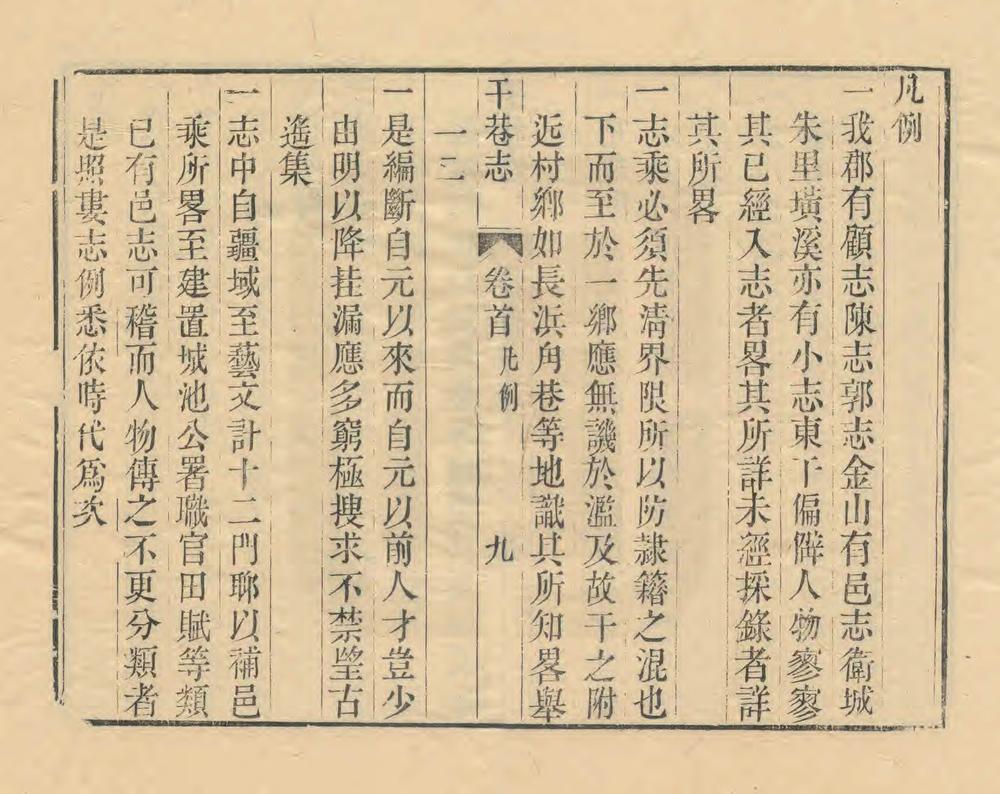 凡例
一我郡有顧志陳志郭志金山有邑志衛城
朱里璜溪亦有小志東干偏僻人物寥寥
其已經入志者畧其所詳未經採錄者詳
其所畧
一志乘必須先清界限所以防隷籍之混也
下而至於一鄉應無譏於濫及故干之附
近村鄉如長浜角巷等地識其所知畧舉
一二
干巷志 卷首 凡例 九
一是編斷自元以來而自元以前人才豈少
由明以降挂漏應多窮極搜求不禁望古
遙集
一志中自疆域至藝文計十二門聊以補邑
乘所畧至建置城池公署職官田賦等類
已有邑志可稽而人物傳之不更分類者
是照婁志例悉依時代爲次